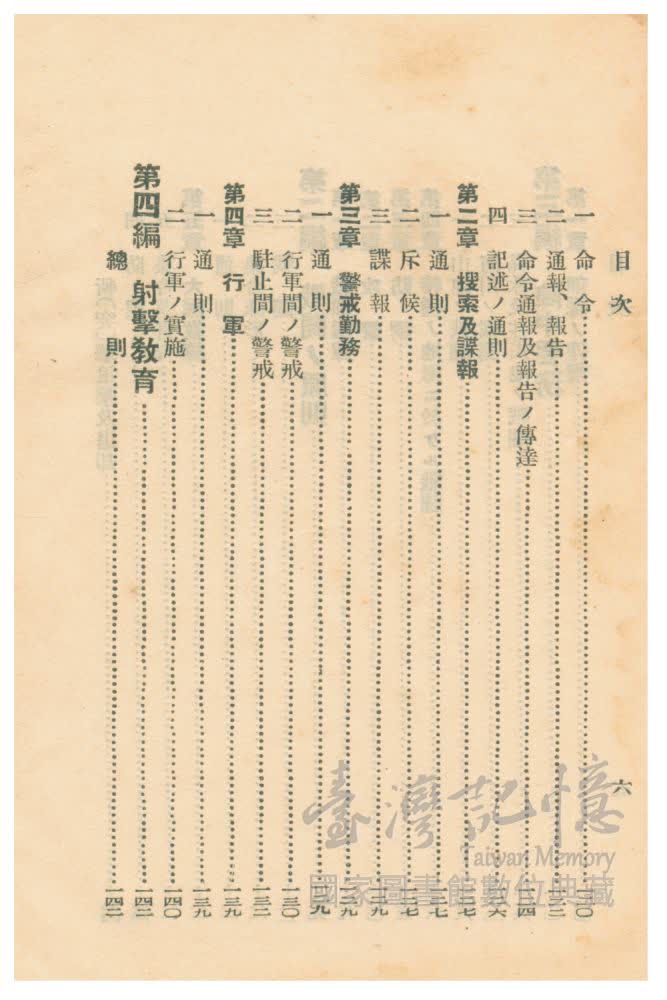 目次
六
一 命令……一二〇
二 通報、報告……一二三
三 命令通報及報告ノ傳達……一二四
四 記述ノ通則……一二六
第二章 搜索及諜報……一二七
一 通則……一二七
二 斥候……一二七
三 諜報……一二九
第三章 警戒勤務……一二九
一 通則……一二九
二 行軍間ノ警戒……一三〇
三 駐止間ノ警戒……一三二
第四章 行軍……一三九
一 通則……一三九
二 行軍ノ實施……一四〇
第四編 射擊教育……一四二
總則……一四二
臺灣記憶
Taiwan Memory
國家圖書館數位典藏